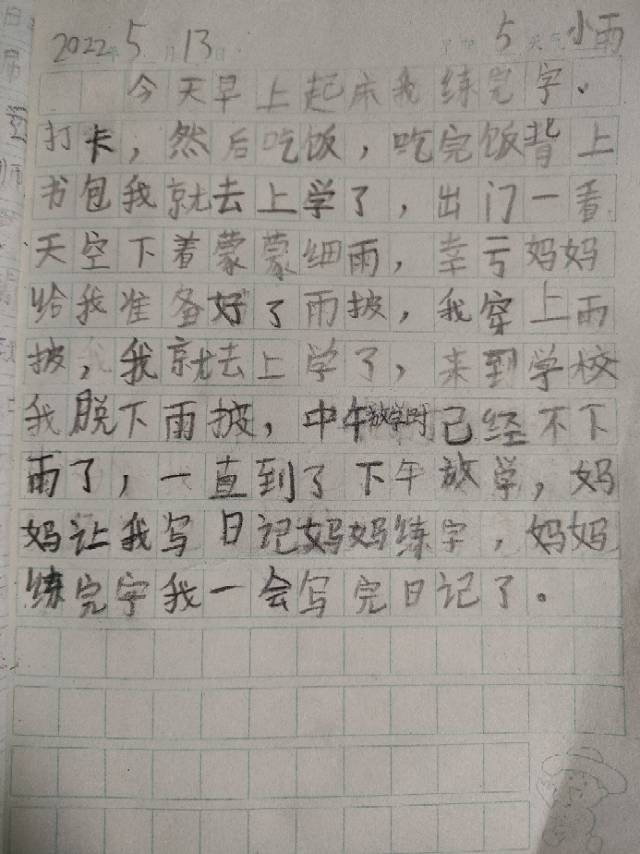 2022年5月13日 星期5 天气小雨
今天早上起床我练完字、
打卡，然后吃饭，吃完饭背上
书包我就去上学了，出门一看
天空下着蒙蒙细雨，幸亏妈妈
给我准备好了雨披，我穿上雨
披，我就去上学了，来到学校
我脱下雨披，中午放学时已经不下
雨了，一直到了下午放学，妈
妈让我写日记妈妈练字，妈妈
练完字我一会写完日记了。